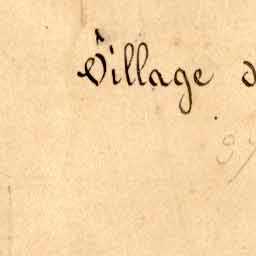 Village d